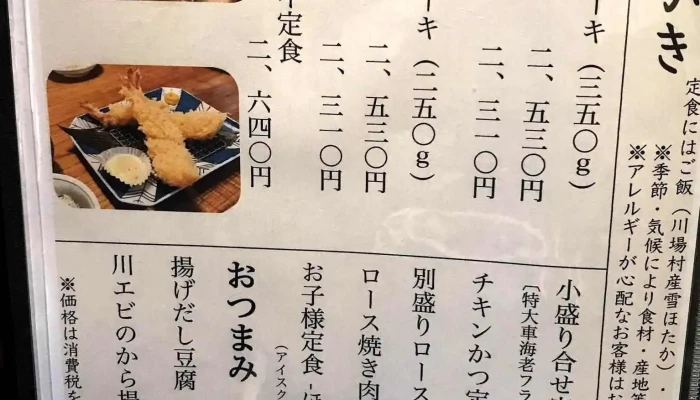 き
定食にはご飯（川場村産雪ほたか）・
※季節・気候により食材・産地等
※アレルギーが心配なお客様はお
ーキ（三五〇g）
二、五三〇円
二、三一〇円
ーキ（二五〇g）
二、五三〇円
二、三一〇円
定食
二、六四〇円
小盛り合せ
〔特大車海老フラ
チキンかつ定
別盛りロース
ロース焼き肉
お子様定食
（アイスク
おつまみ
揚げだし豆腐
川エビのから揚
※価格は消費税を